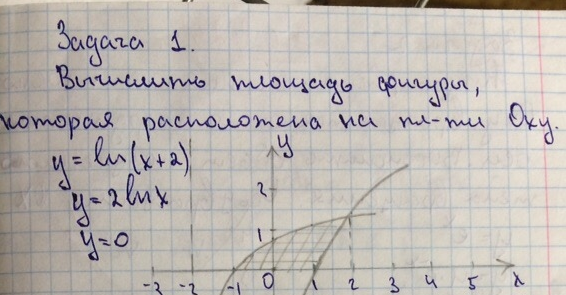 Задача 1.
Вычислить площадь фигуры,
которая расположена на пл-ти Oxy.
y = ln(x+2)
y = 2lnx
y = 0
y
2
1
-3 -2 -1 0 1 2 3 4 5 x